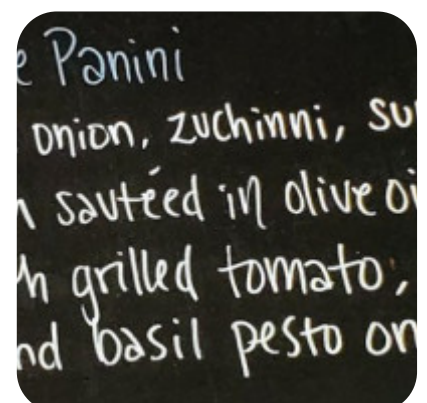 e Panini
onion, zuchinni, su
n sautéed in olive oi
h grilled tomato,
nd basil pesto on